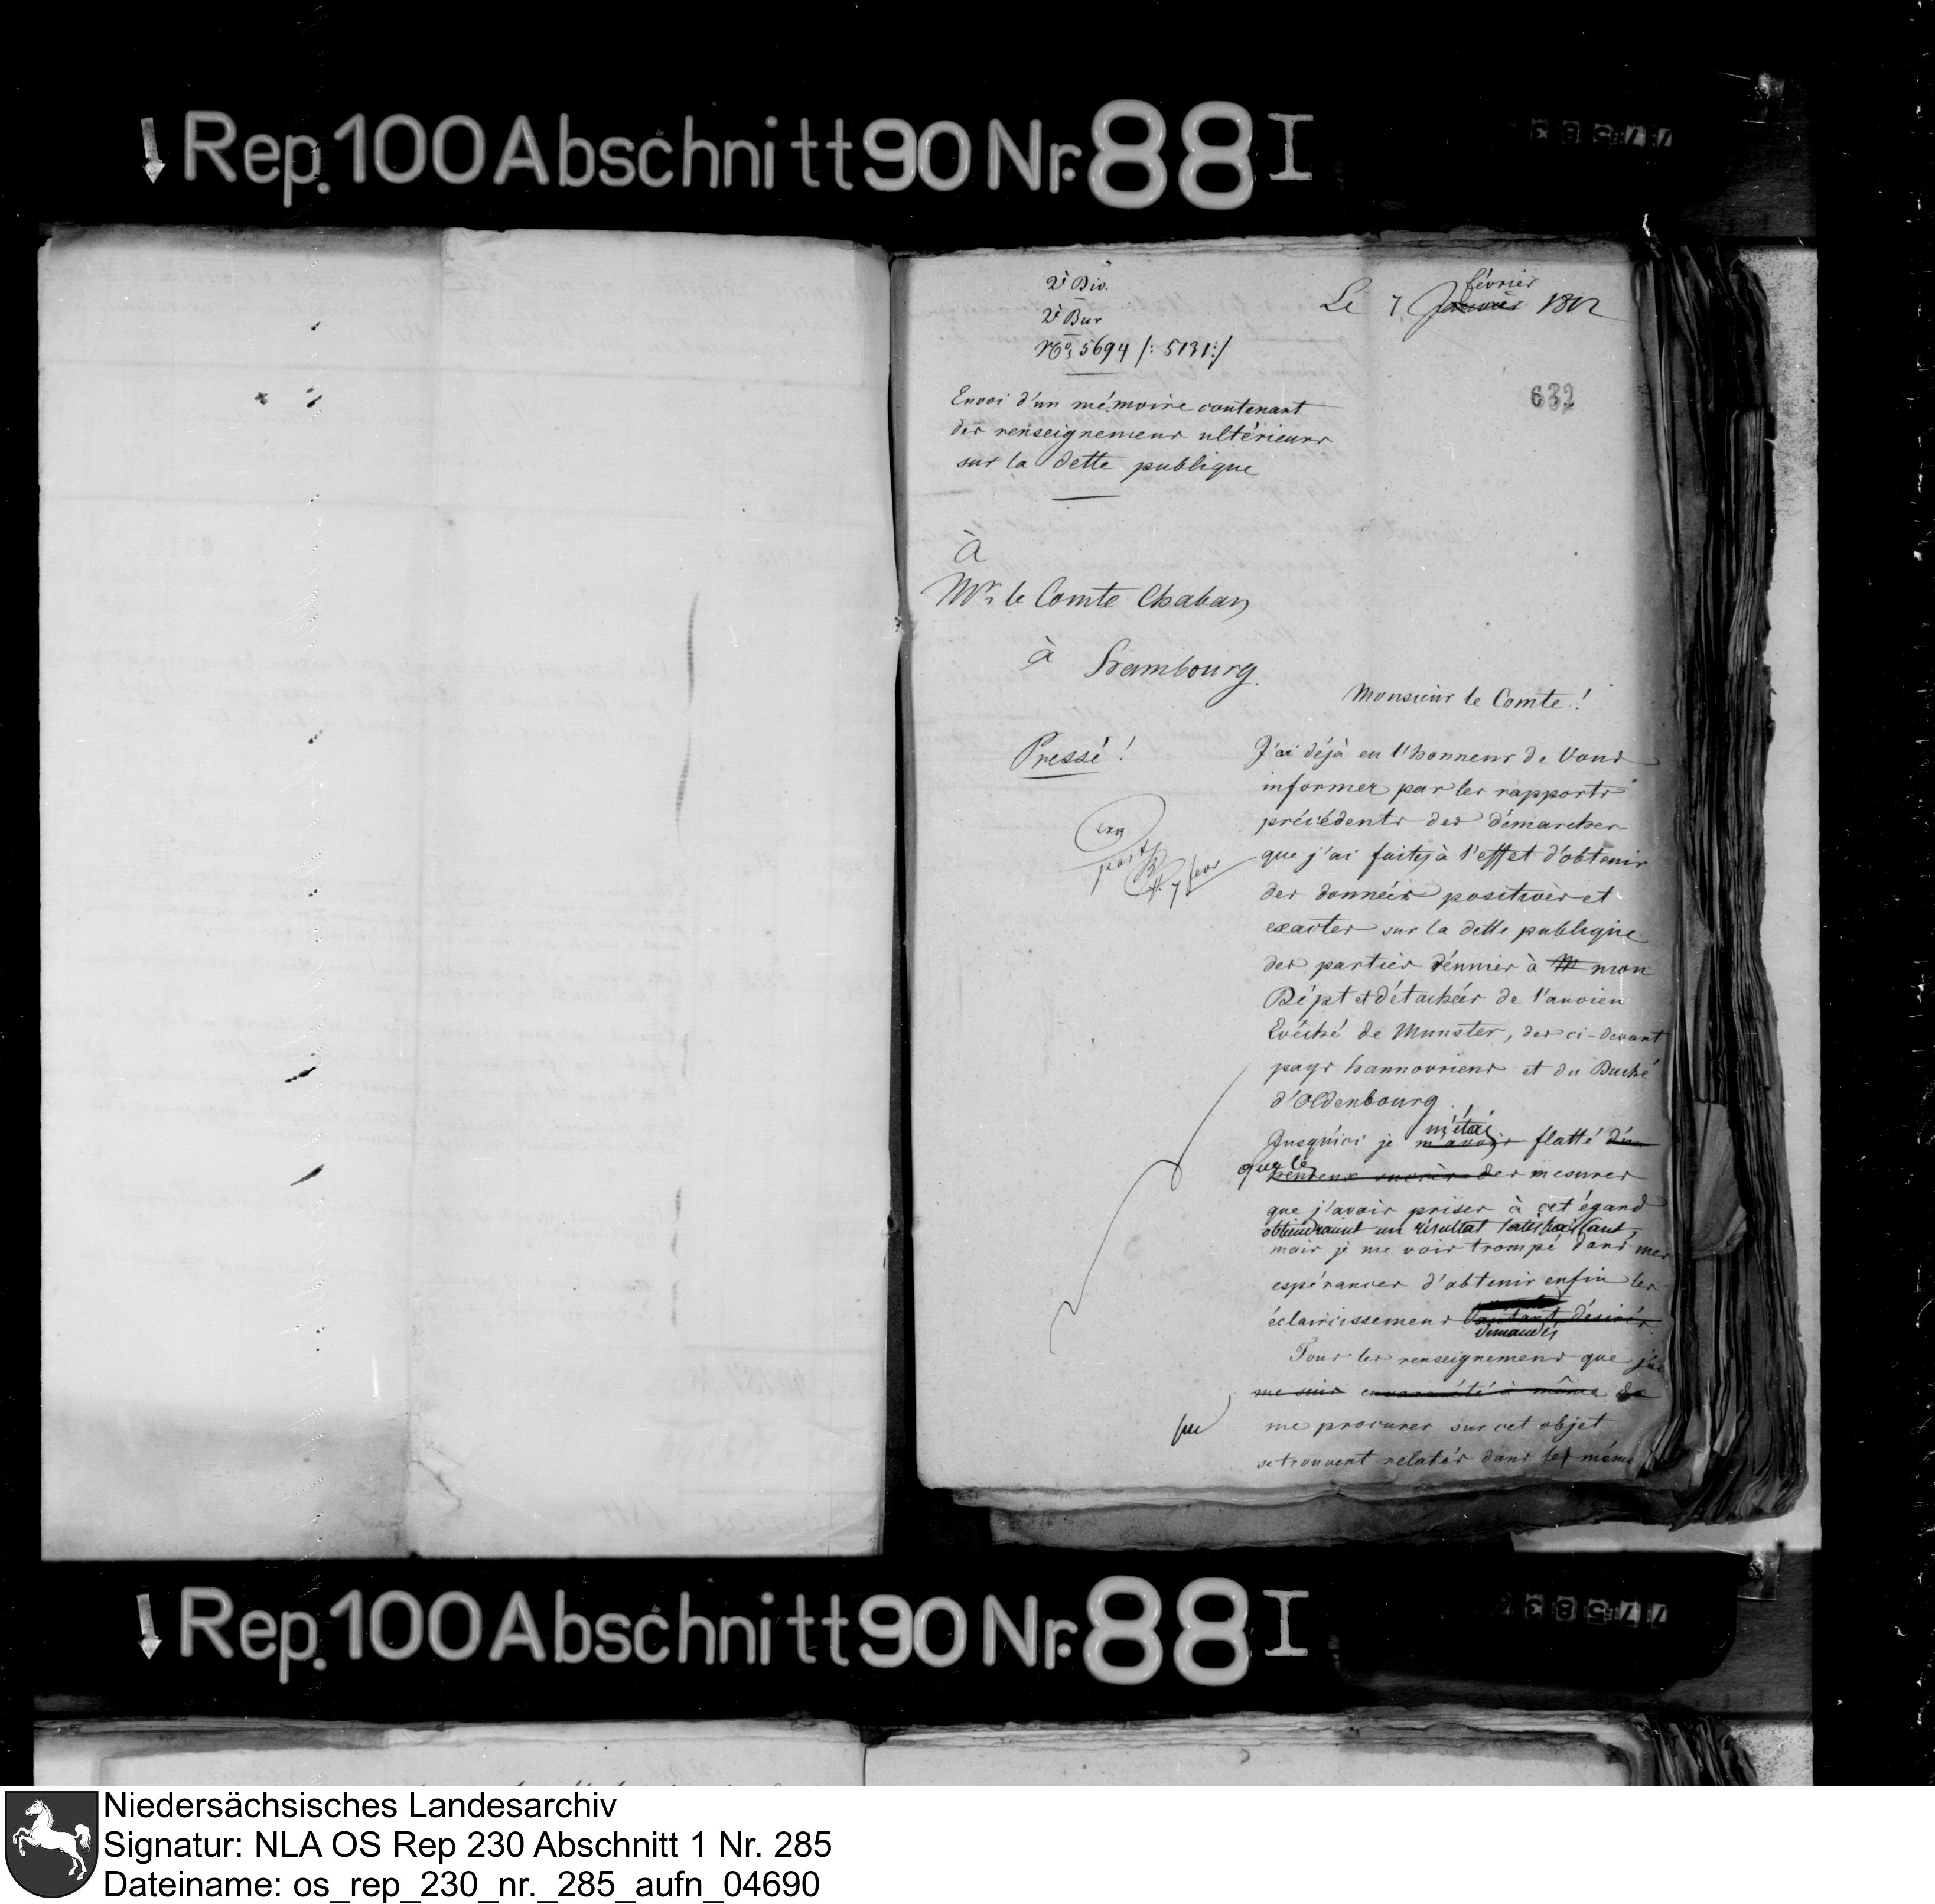 Rep. 100 Abschnitt 90 Nr. 88 I
2e Div.
2e Bur
No. 5694 /: 5131:/
Le 7 Janvier février 1812
632
Envoi d'un mémoire contenant
des renseignemens ultérieurs
sur la dette publique
à
Mr. le Comte Chaban
à Hambourg.
Monsieur le Comte !
Pressé !
J'ai déjà eu l'honneur de Vous
informer par les rapports
précédents des démarches
que j'ai faites à l'effet d'obtenir
des données positives et
exactes sur la dette publique
des parties réunies à mon
Dépt et détachées de l'ancien
Evêché de Munster, des ci-devant
pays hannovriens et du Duché
d'Oldenbourg
m'étais
Jusqu'ici je m'avois flatté d'un
que les
heureux succès des mesures
que j'avois prises à cet égard
obtiendraient un résultat satisfaisant,
mais je me vois trompé dans mes
espérances d'obtenir enfin les
éclaircissemens tant désirés
demandés
Tous les renseignemens que j'ai
me suis encore été à même de
pu
me procurer sur cet objet
se trouvent relatés dans le mémo
Rep. 100 Abschnitt 90 Nr. 88 I
Niedersächsisches Landesarchiv
Signatur: NLA OS Rep 230 Abschnitt 1 Nr. 285
Dateiname: os_rep_230_nr._285_aufn_04690